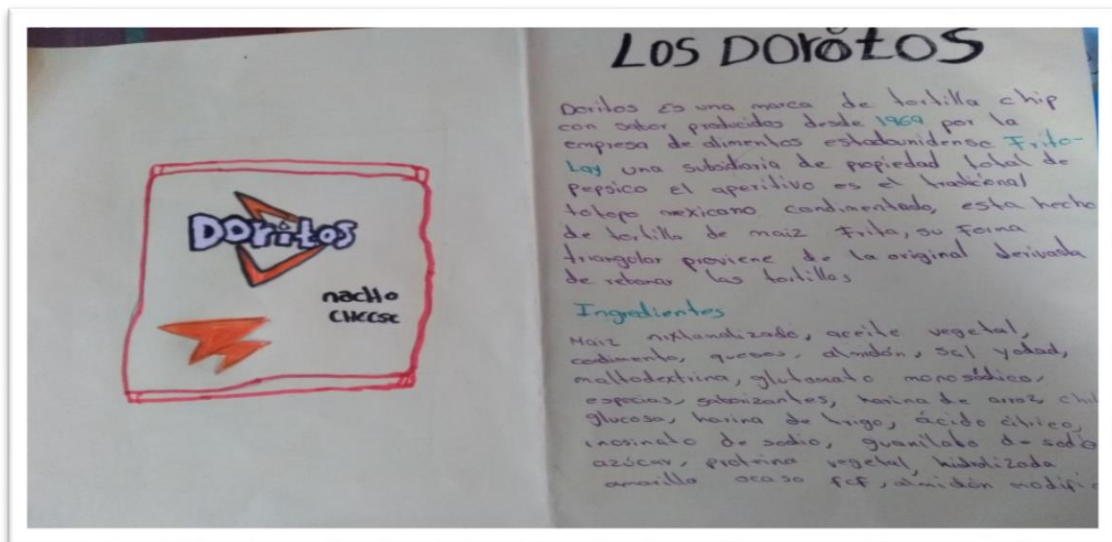 Doritos
nacho
cheese
LOS DORitOS
Doritos es una marca de tortilla chip
con sabor producidos desde 1969 por la
empresa de alimentos estadounidense Frito-
Lay una subsidaria de propiedad total de
pepsico el aperitivo es el tradicional
totopo mexicano condimentado, esta hecho
de tortilla de maiz Frita, su Forma
triangular proviene de la original derivada
de rebanar las tortillas
Ingredientes
Maiz nixtamalizado, aceite vegetal,
condimento, quesos, almidón, sal yodad,
maltodextrina, glutamato monosódico,
especias, saborizantes, harina de arroz
glucosa, harina de trigo, ácido cítrico,
inosinato de sodio, guanilato de sodio
azúcar, proteina vegetal, hidrolizada
amarillo ocaso fcf, almidón modific